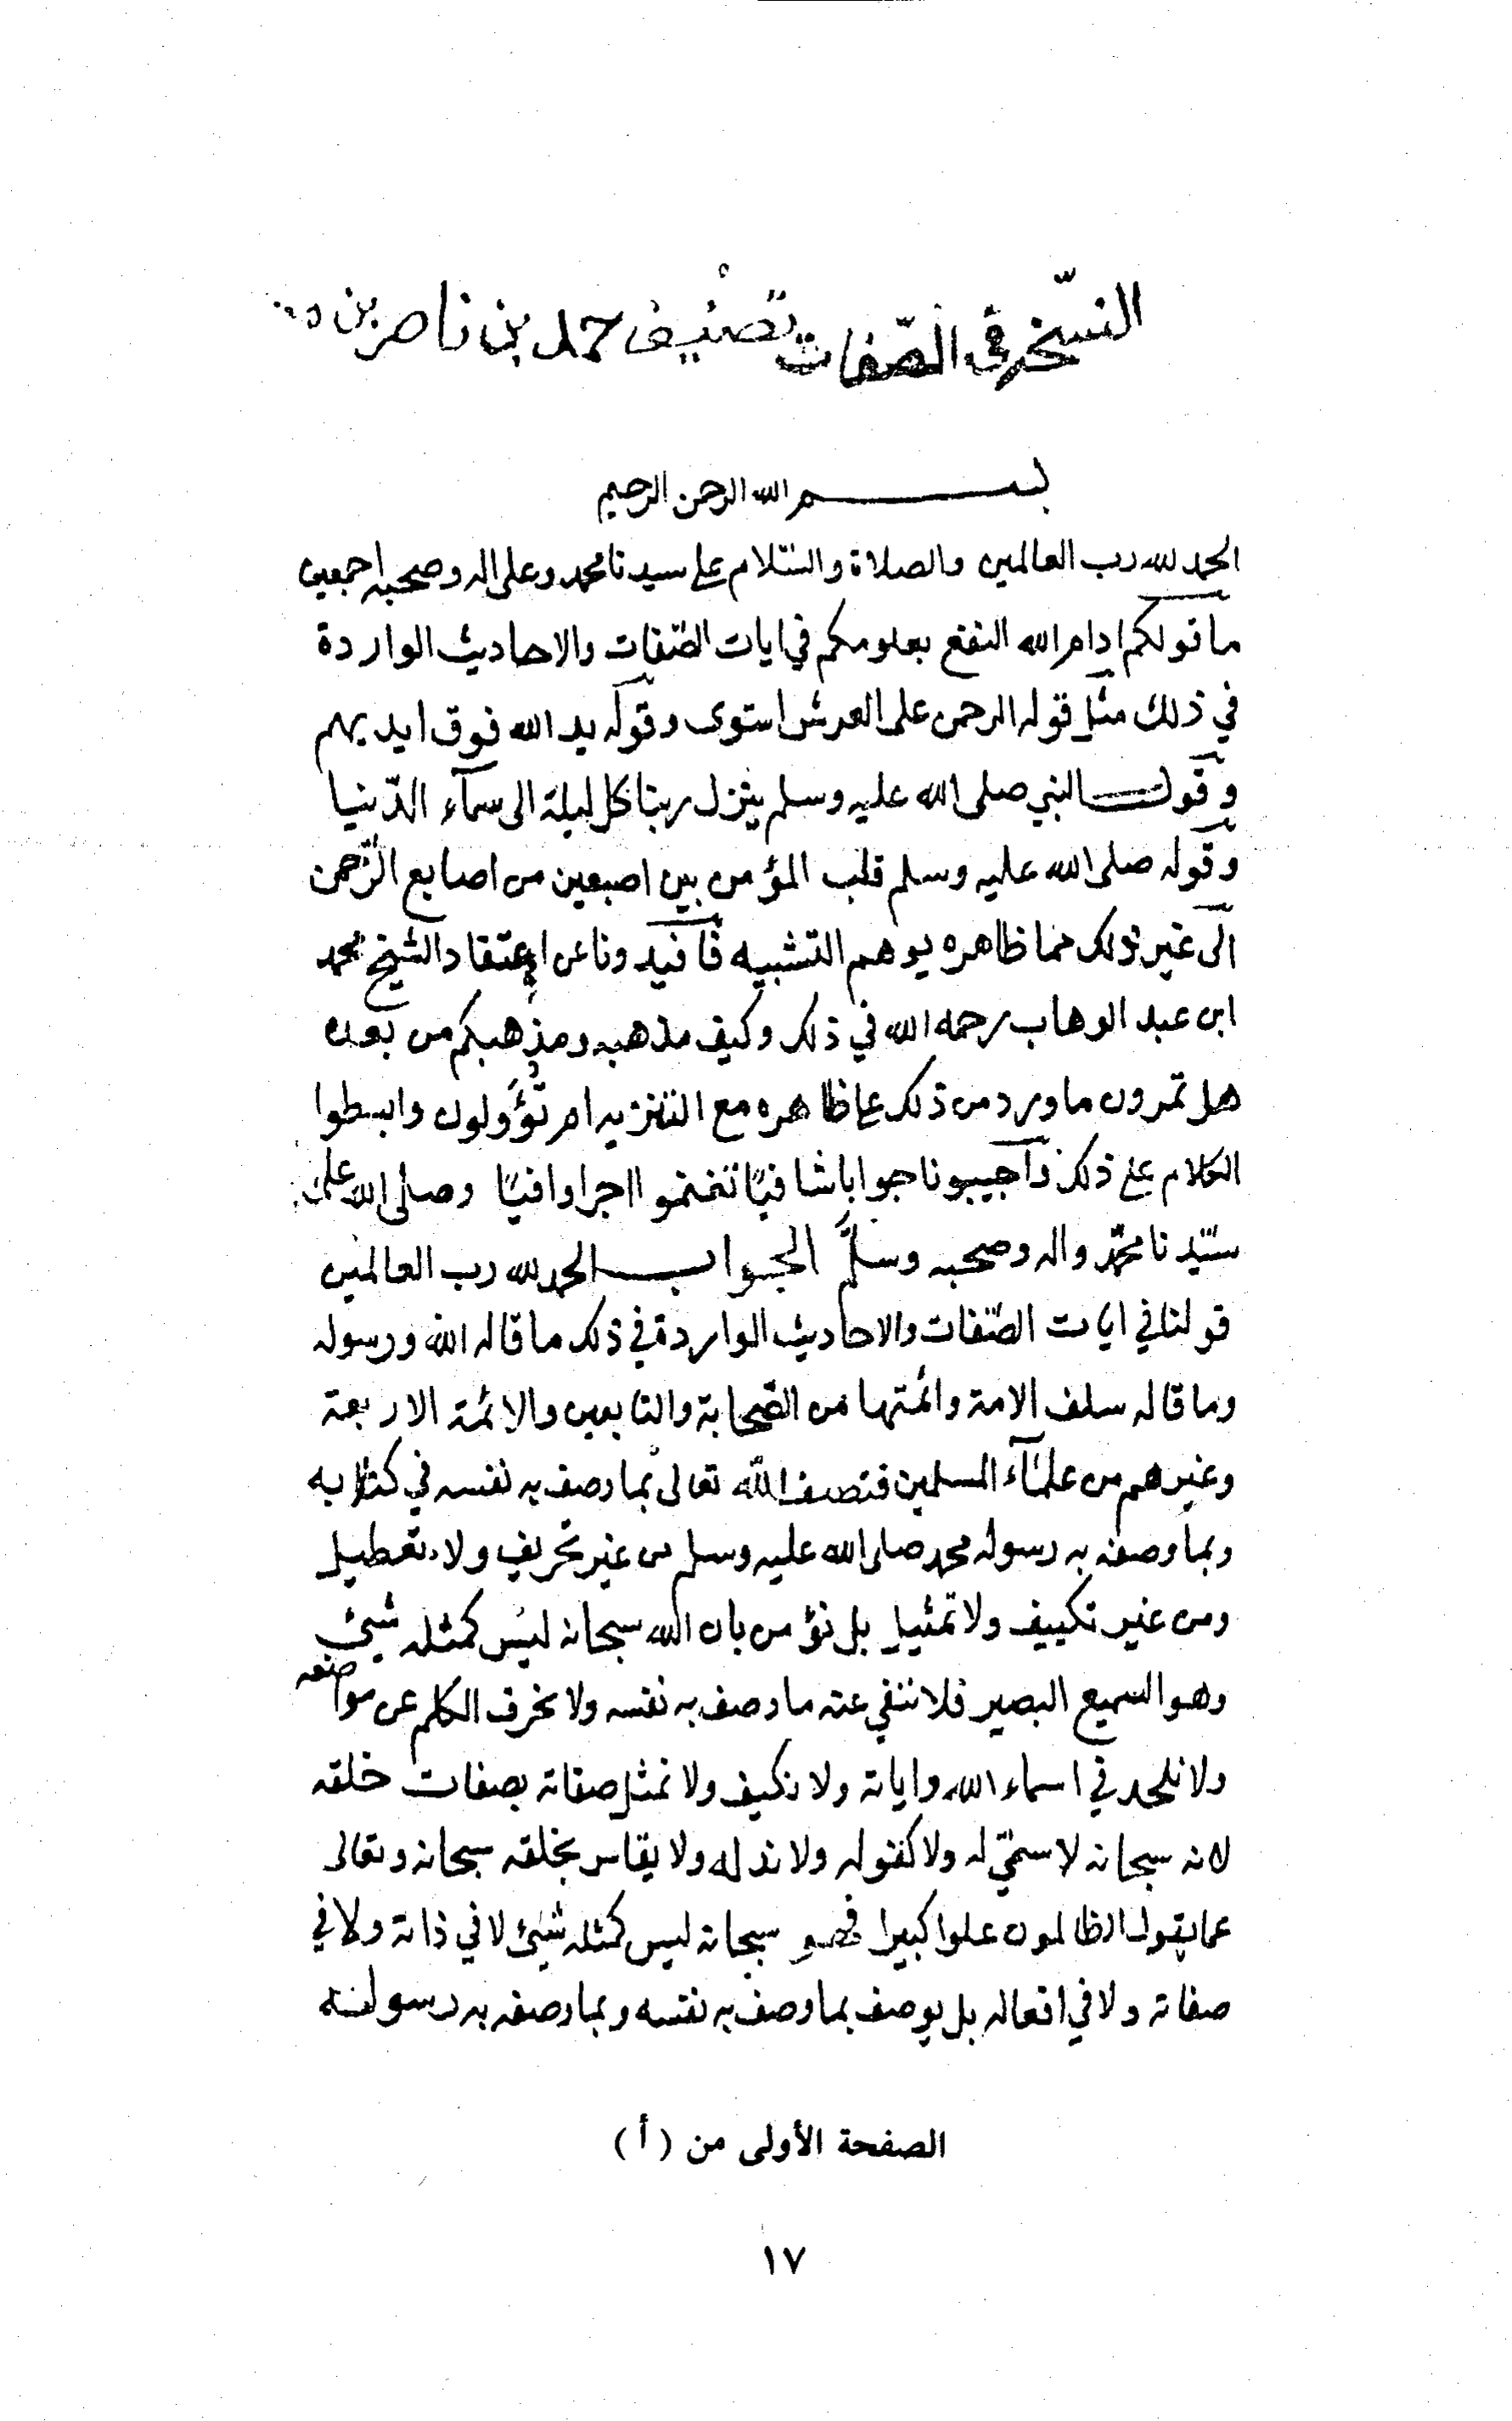 النسخة في الصّفات تصنيف حمد بن ناصر بن
بسم الله الرحمن الرحيم
الحمد لله رب العالمين والصلاة والسّلام على سيدنا محمد وعلى اله وصحبه اجمعين
ما قولكم ادام الله النفع بعلومكم في ايات الصّفات والاحاديث الواردة
في ذلك مثل قوله الرحمن على العرش استوى وقوله يد الله فوق ايديهم
وقول النبي صلى الله عليه وسلم ينزل ربنا كل ليلة الى سمآء الدّنيا
وقوله صلى الله عليه وسلم قلب المؤمن بين اصبعين من اصابع الرّحمن
الى غير ذلك مما ظاهره يوهم التشبيه فافيدونا عن اعتقاد الشيخ محمد
ابن عبد الوهاب رحمه الله في ذلك وكيف مذهبه ومذهبكم من بعده
هل تمرون ما ورد من ذلك على ظاهره مع التنزيه ام تؤولون وابسطوا
الكلام على ذلك واجيبونا جوابا شافيًا تغنموا اجرا وافيًا وصلى الله على
سيّدنا محمّد واله وصحبه وسلّم الجواب الحمد لله رب العالمين
قولنا في ايات الصّفات والاحاديث الواردة في ذلك ما قاله الله ورسوله
وما قاله سلف الامة وائمتها من الصّحابة والتابعين والائمة الاربعة
وغيرهم من علمآء المسلمين فنصف اللّه تعالى بما وصف به نفسه في كتابه
وبما وصفه به رسوله محمد صلى الله عليه وسلم من غير تحريف ولا تعطيل
ومن غير تكييف ولا تمثيل بل نؤمن بان الله سبحانه ليس كمثله شيئ
وهو السميع البصير فلا ننفي عنه ما وصف به نفسه ولا نحرف الكلم عن مواضعه
ولا نلحد في اسماء الله واياته ولا نكيف ولا نمثل صفاته بصفات خلقه
لانه سبحانه لا سميّ له ولا كفو له ولا ند له ولا يقاس بخلقه سبحانه وتعالى
عما يقول الظالمون علوا كبيرا فهو سبحانه ليس كمثله شيئ لا في ذاته ولا في
صفاته ولا في افعاله بل يوصف بما وصف به نفسه وبما وصفه به رسوله
الصفحة الأولى من (أ)
١٧